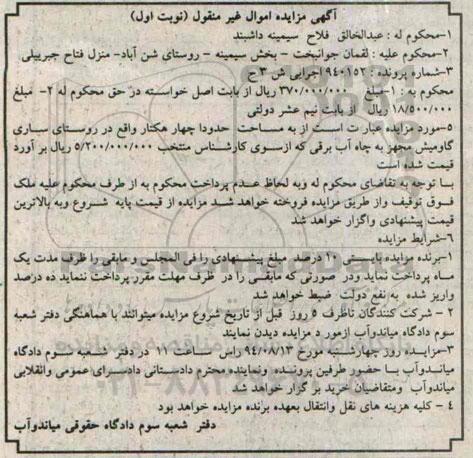 آگهی مزایده اموال غیر منقول (نوبت اول)
۱-محکوم له : عبدالخالق فلاح سیمینه داشبند
۲-محکوم علیه : لقمان جوانبخت - بخش سیمینه - روستای شن آباد- منزل فتاح جبرییلی
۳-شماره پرونده : ۹۴۰۱۵۲ اجرایی ش ۳ ح
محکوم به : ۱-مبلغ ۳۷۰/۰۰۰/۰۰۰ ریال از بابت اصل خواسته در حق محکوم له ۲- مبلغ
۱۸/۵۰۰/۰۰۰ ریال از بابت نیم عشر دولتی
۵-مورد مزایده عبارت است از به مساحت حدودا چهار هکتار واقع در روستای ساری
گاومیش مجهز به چاه آب برقی که ازسوی کارشناس منتخب ۵/۲۰۰/۰۰۰/۰۰۰ ریال بر آورد
قیمت شده است
با توجه به تقاضای محکوم له وبه لحاظ عدم پرداخت محکوم به از طرف محکوم علیه ملک
فوق توقیف واز طریق مزایده فروخته خواهد شد مزایده از قیمت پایه شروع وبه بالاترین
قیمت پیشنهادی واگزار خواهد شد
۶-شرایط مزایده
۱-برنده مزایده بایستی ۱۰ درصد مبلغ پیشنهادی را فی المجلس و مابقی را ظرف مدت یک
ماه پرداخت نماید ودر صورتی که مابقی را در ظرف مهلت مقرر پرداخت ننماید ده درصد
واریز شده به نفع دولت ضبط خواهد شد
۲ - شرکت کنندگان تاظرف ۵ روز قبل از تاریخ شروع مزایده میتوانند با هماهنگی دفتر شعبه
سوم دادگاه میاندوآب ازمورد مزایده دیدن نمایند
۳-مزایده روز چهارشنبه مورخ ۹۴/۰۸/۱۳ راس ساعت ۱۱ در دفتر شعبه سوم دادگاه
میاندوآب با حضور طرفین پرونده ونماینده محترم دادستانی دادسرای عمومی وانقلابی
میاندوآب ومتقاضیان خرید بر گزار خواهد شد
۴ - کلیه هزینه های نقل وانتقال بعهده برنده مزایده خواهد بود
دفتر شعبه سوم دادگاه حقوقی میاندوآب